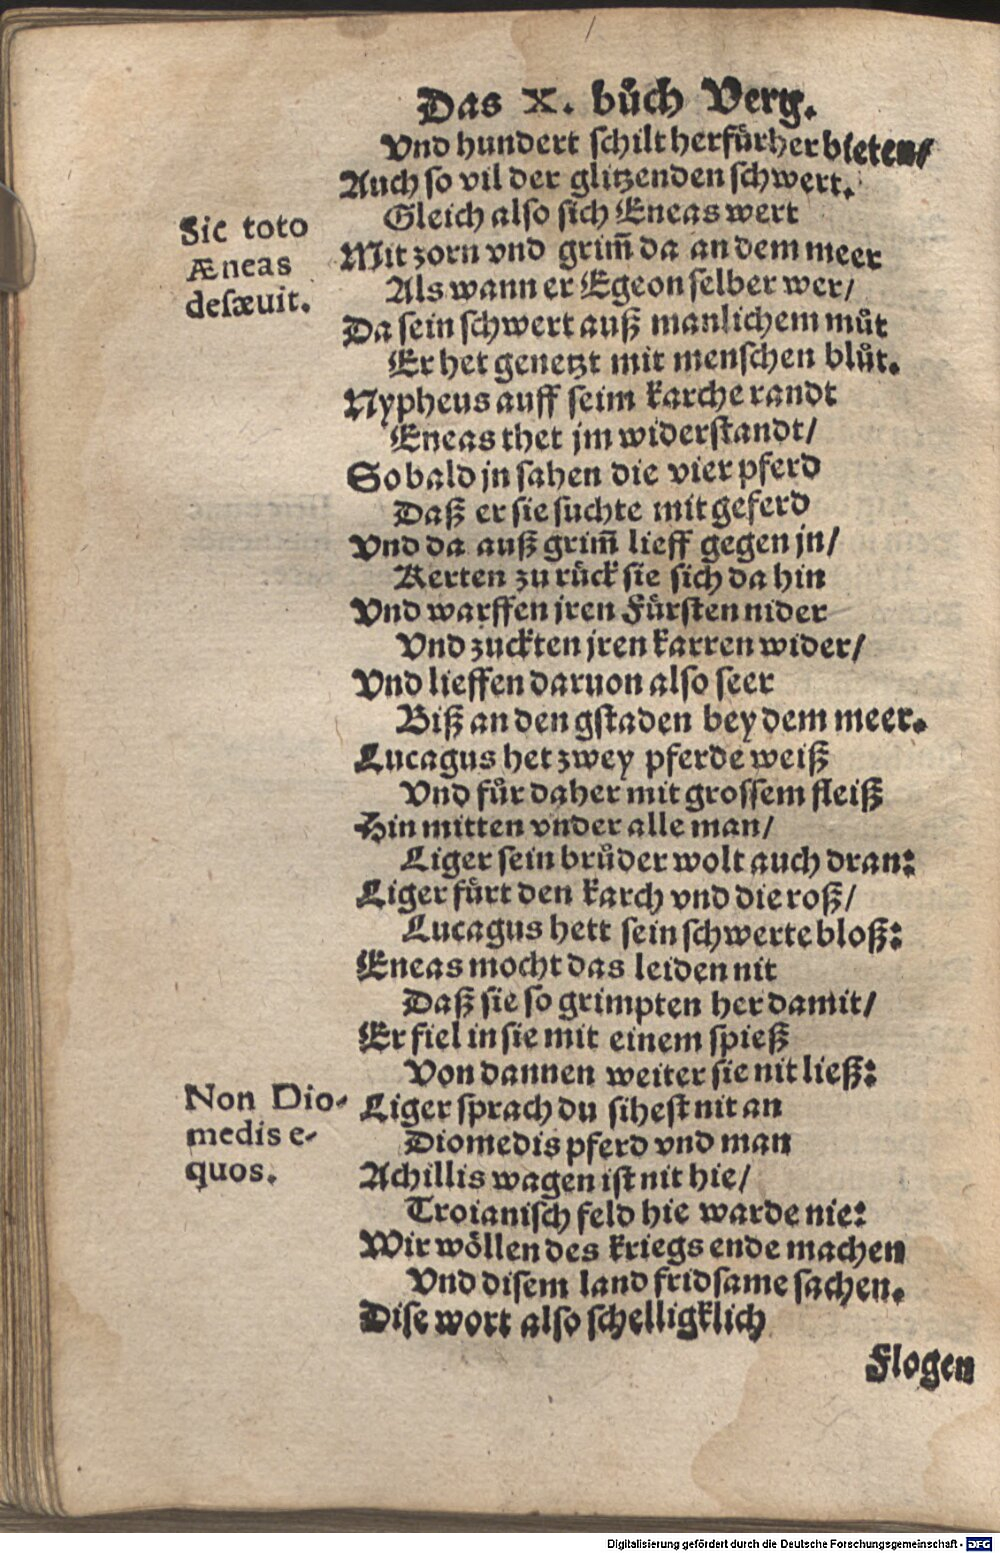 Das X. bůch Verg.
Vnd hundert schilt herfürher bieten/
Auch so vil der glitzenden schwert.
Gleich also sich Eneas wert
Sic toto
Æneas
desæuit.
Mit zorn vnd grim̃ da an dem meer
Als wann er Egeon selber wer/
Da sein schwert auß manlichem můt
Er het genetzt mit menschen blůt.
Nypheus auff seim karche randt
Eneas thet jm widerstandt/
So bald jn sahen die vier pferd
Daß er sie suchte mit geferd
Vnd da auß grim̃ lieff gegen jn/
Kerten zu rück sie sich da hin
Vnd warffen jren Fürsten nider
Vnd zuckten jren karren wider/
Vnd lieffen daruon also seer
Biß an den gstaden bey dem meer.
Lucagus het zwey pferde weiß
Vnd fůr daher mit grossem fleiß
Hin mitten vnder alle man/
Liger sein brůder wolt auch dran:
Liger fůrt den karch vnd die roß/
Lucagus hett sein schwerte bloß:
Eneas mocht das leiden nit
Daß sie so grimpten her damit/
Er fiel in sie mit einem spieß
Von dannen weiter sie nit ließ:
Non Dio-
medis e-
quos.
Liger sprach du sihest nit an
Diomedis pferd vnd man
Achillis wagen ist nit hie/
Troianisch feld hie warde nie:
Wir wöllen des kriegs ende machen
Vnd disem land fridsame sachen.
Dise wort also schelligklich
Flogen
Digitalisierung gefördert durch die Deutsche Forschungsgemeinschaft - DFG